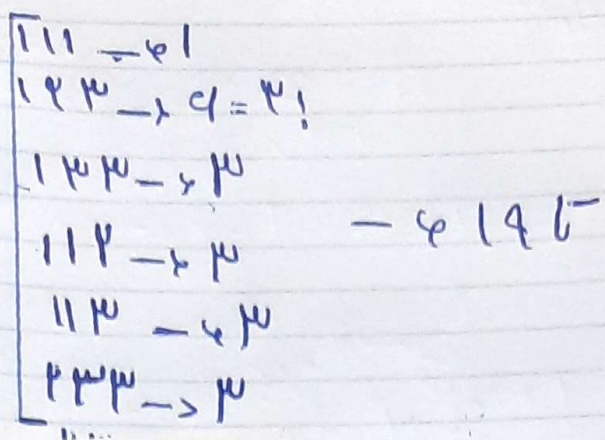 ۱۱۱ → ۱
۱۲۳ → ۶ = ۳!
۱۳۳ → ۳
۱۱۲ → ۳
۱۱۳ → ۳
۲۳۳ → ۳